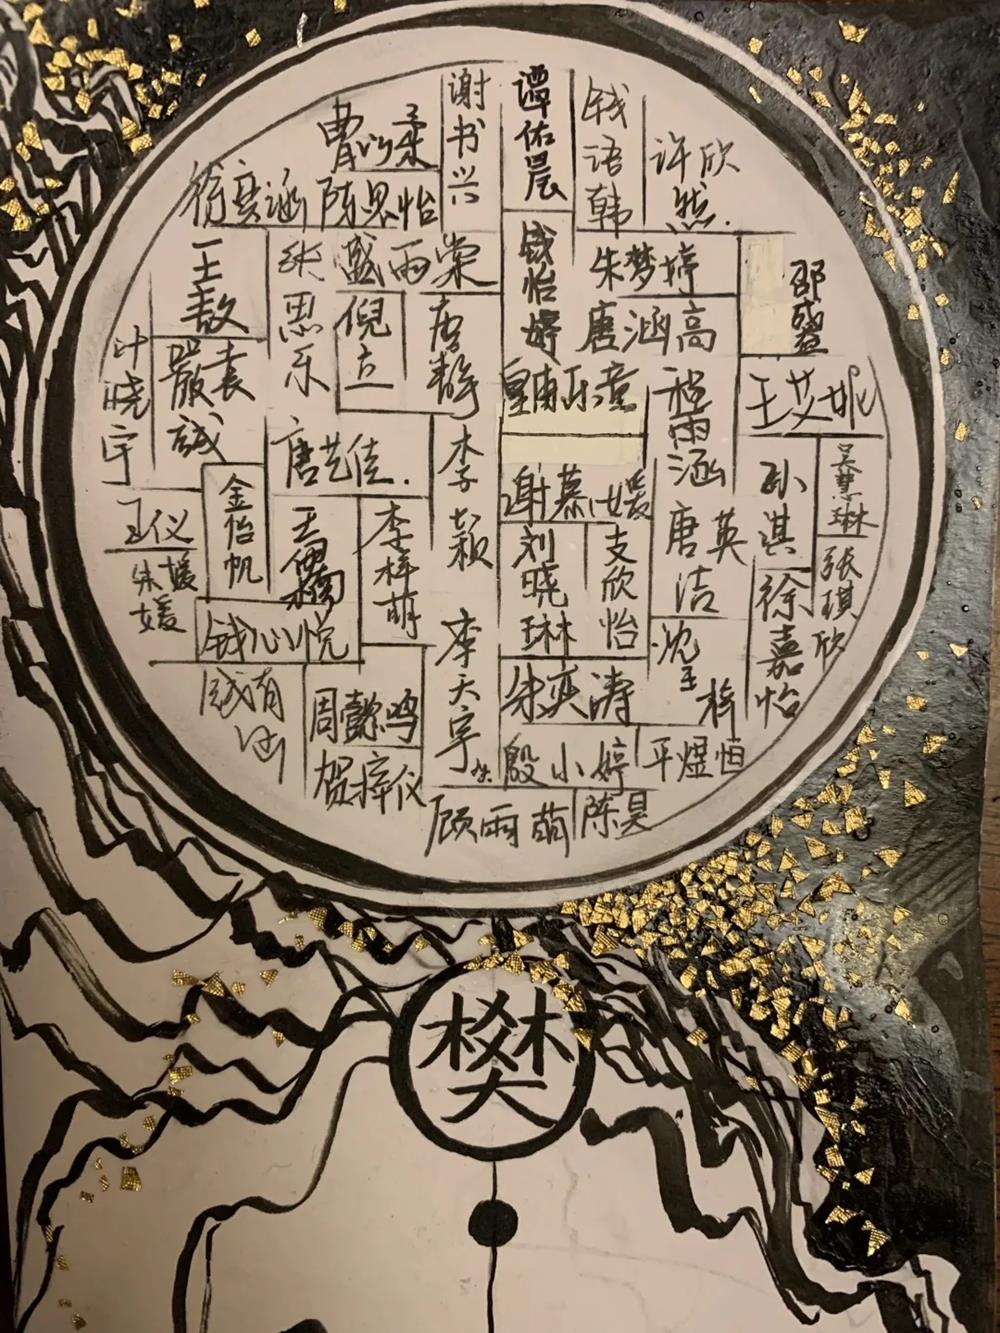 谢书兴
谭佑晨
钱语韩
许欣然.
曹以柔
徐奕涵
陈思怡
王敖
张思乐
盛雨棠
钱怡婷
朱梦婷
邵盛
倪立
唐静
唐涵高
叶晓宇
严袁诚
皇甫乐童
程雨涵
王艾妮
唐艺佳.
李颖
孙淇
吴慧琳
金怡帆
谢慕媛
唐英洁
王仪
李梓萌
刘晓琳
支欣怡
徐嘉怡
张琪欣
朱媛媛
钱心悦
李天宇
朱奕涛
沈玉梓
周懿鸣
殷小婷
平煜恒
贺梓仪
顾雨萌
陈昊
樊